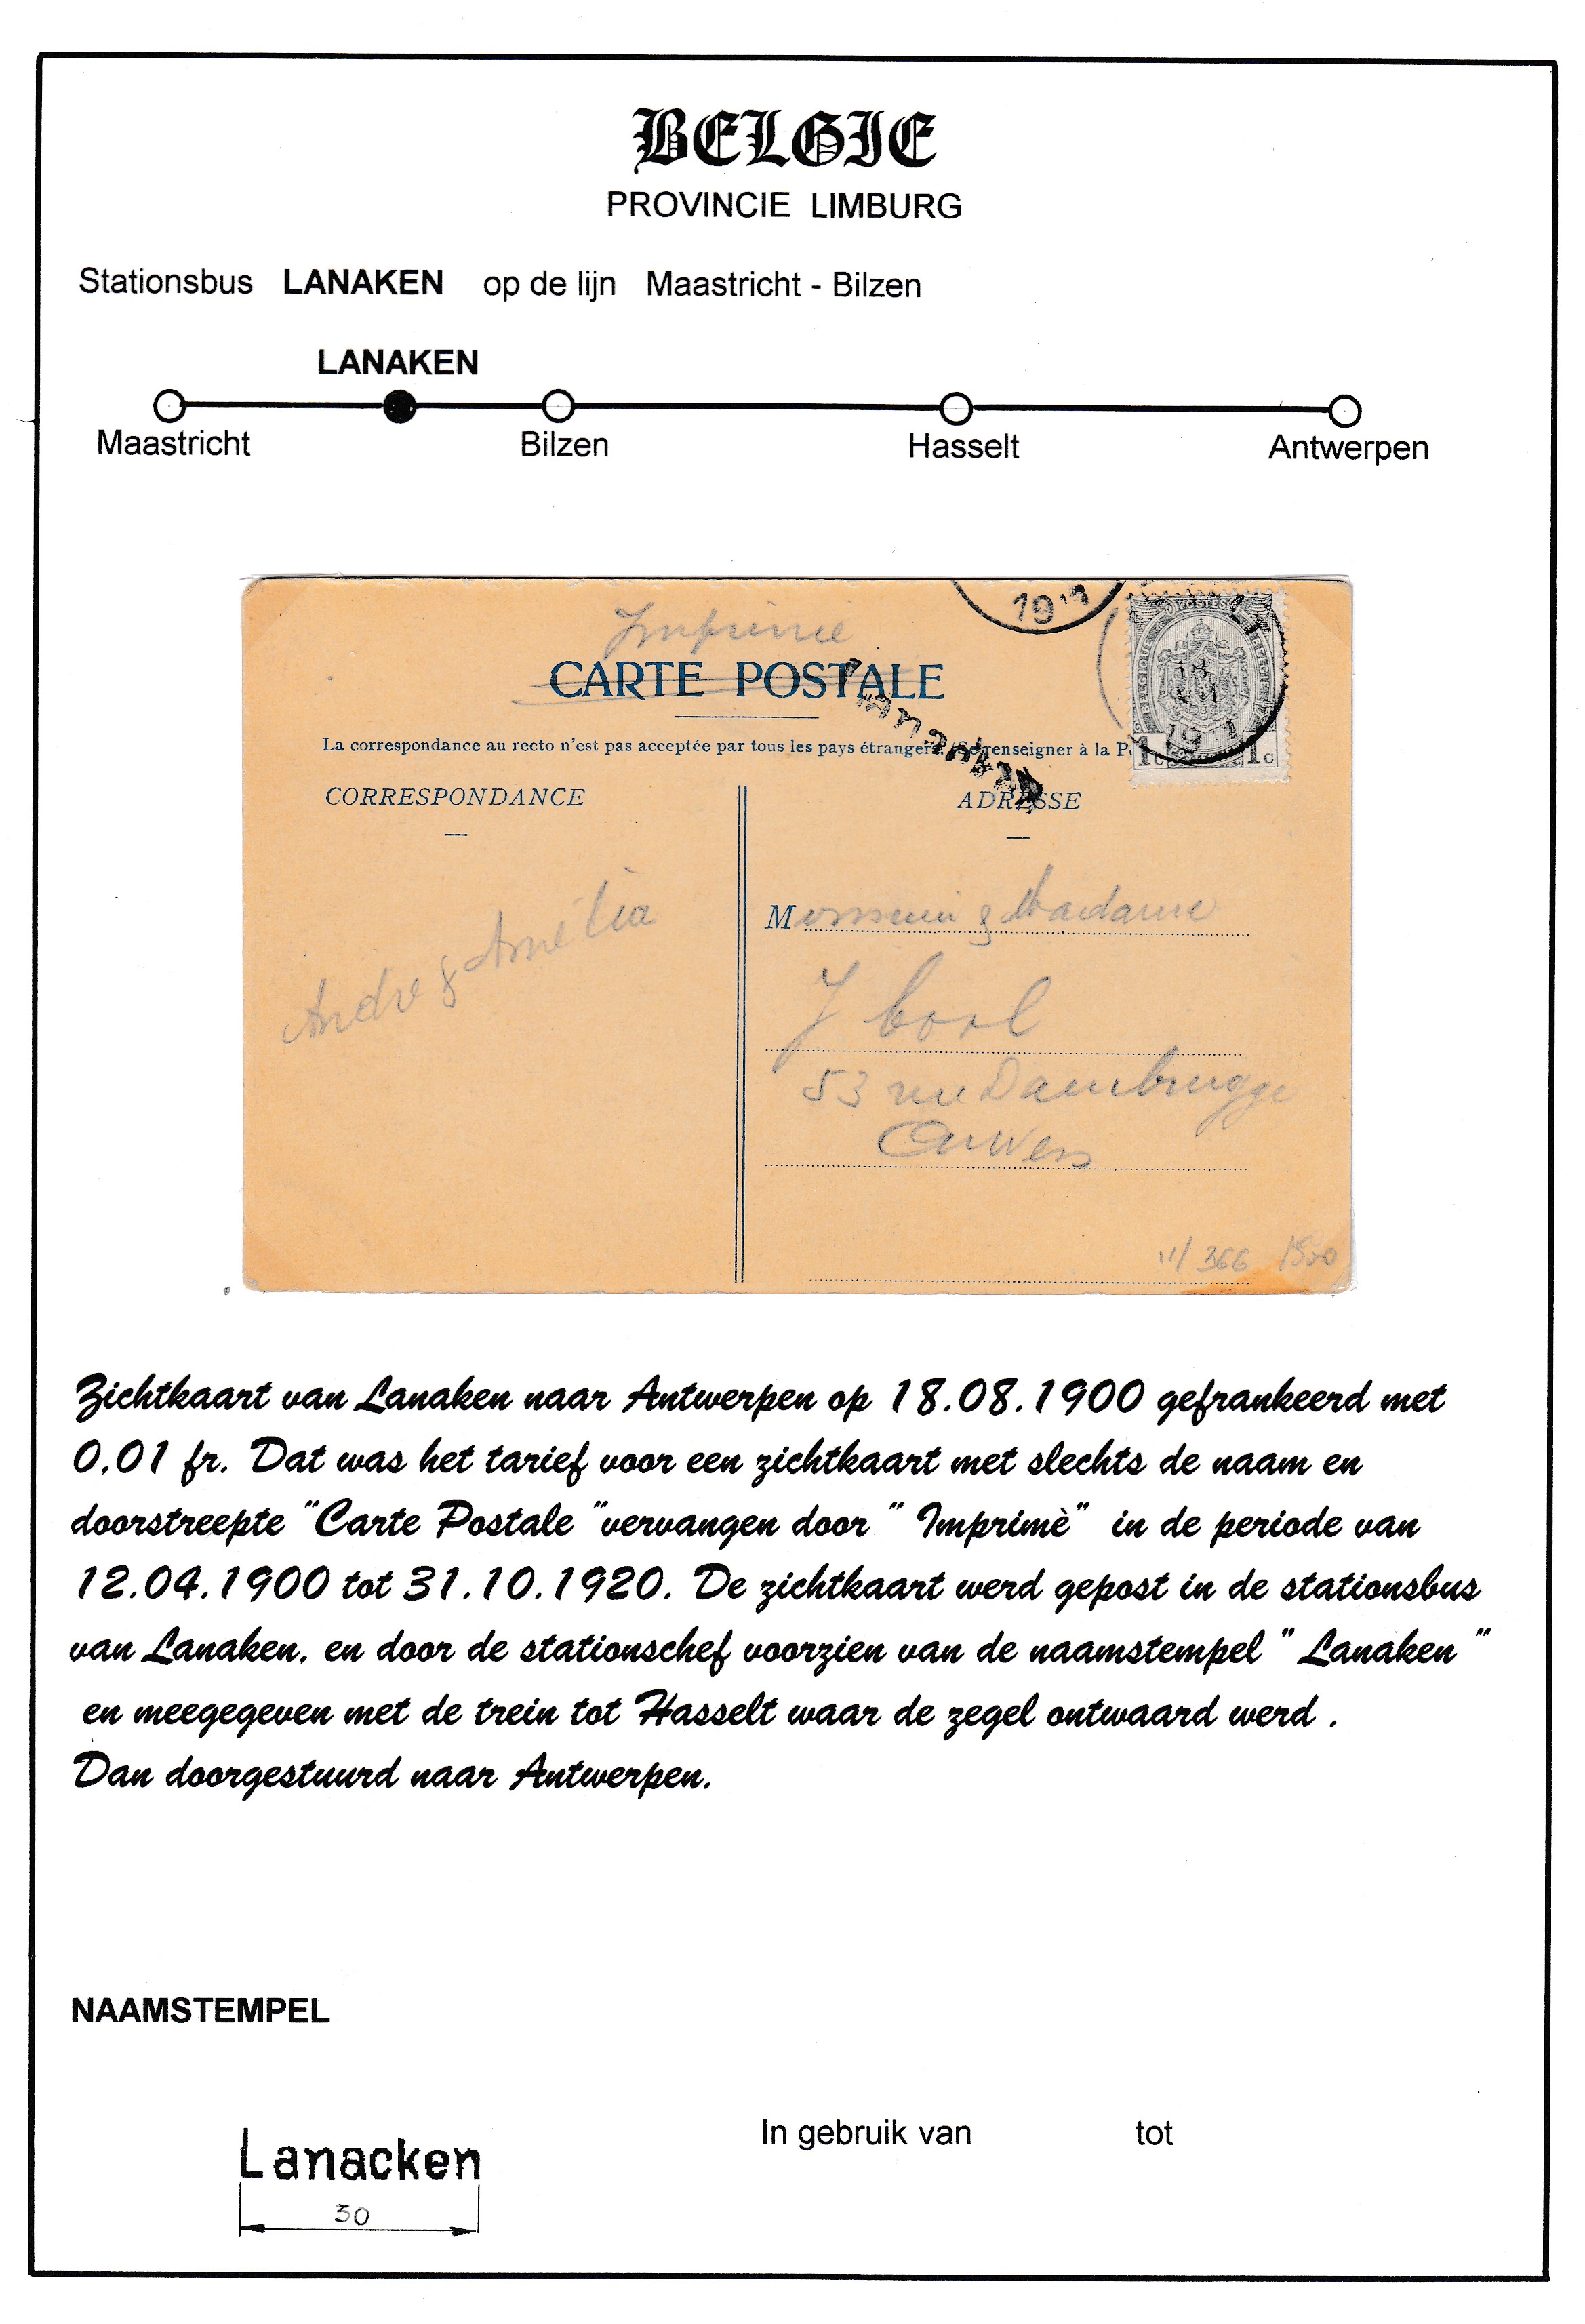 BELGIE
PROVINCIE LIMBURG
Stationsbus LANAKEN op de lijn Maastricht - Bilzen
LANAKEN
Maastricht Bilzen Hasselt Antwerpen
Imprimé
1911
CARTE POSTALE
POSTES
BELGIQUE BELGIE
18
Lanacken
La correspondance au recto n'est pas acceptée par tous les pays étrangers (Se renseigner à la P
1c 1c
CORRESPONDANCE
ADRESSE
André & Amélia
Monsieur & Madame
J bool
53 rue Dambrugge
Anvers
366 1500
Zichtkaart van Lanaken naar Antwerpen op 18.08.1900 gefrankeerd met
0,01 fr. Dat was het tarief voor een zichtkaart met slechts de naam en
doorstreepte "Carte Postale "vervangen door " Imprimè" in de periode van
12.04.1900 tot 31.10.1920. De zichtkaart werd gepost in de stationsbus
van Lanaken, en door de stationschef voorzien van de naamstempel " Lanaken "
en meegegeven met de trein tot Hasselt waar de zegel ontwaard werd .
Dan doorgestuurd naar Antwerpen.
NAAMSTEMPEL
In gebruik van tot
Lanacken
30